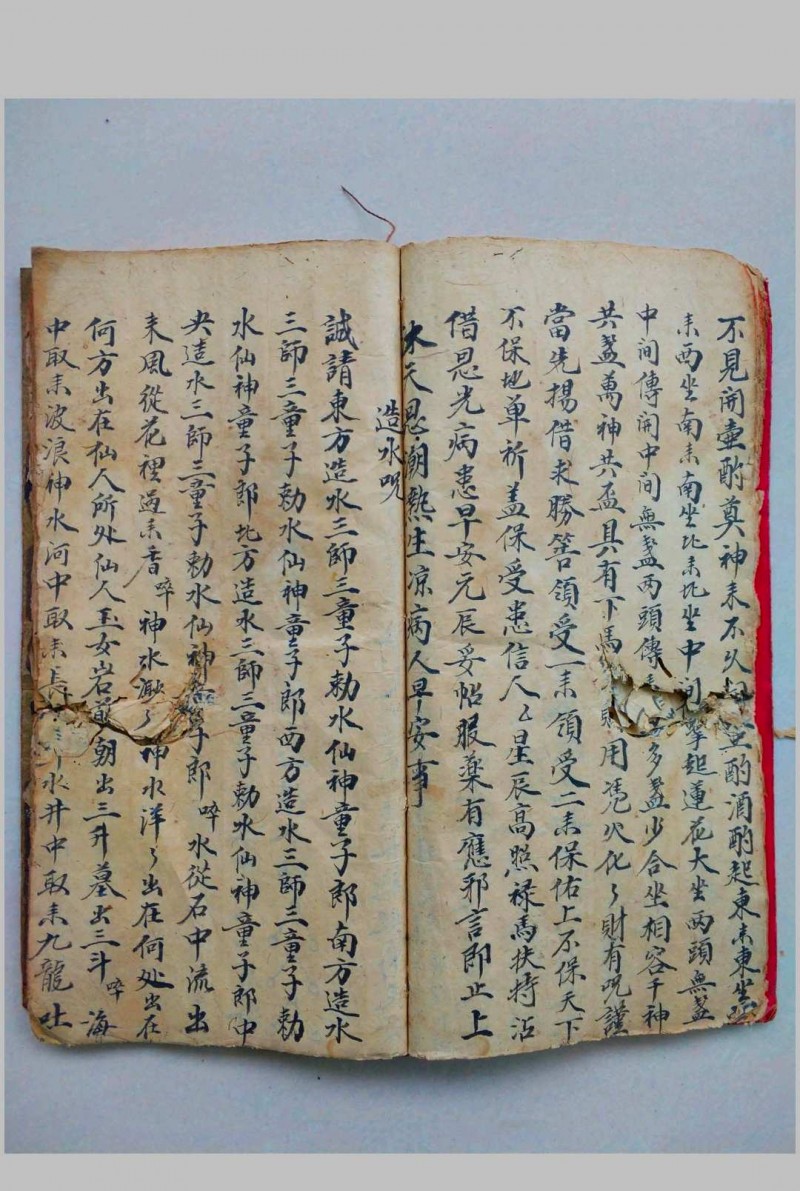 不見開壺酌奠神来不久壺酌酒酌起東来東坐
来西坐南来南坐北来北坐中间擎起蓮花大坐两頭無盞
中间傳開中间無盞两頭傳多盞少合坐相容千神
共盞萬神共盃具有下馬財用凭火化〻財有呪謹
當先揚借求勝筶領受一来領受二来保佑上不保天下
不保地单祈盖保受患信人〻星辰高照禄馬扶持沾
借恩光病患早安元辰妥帖服薬有應邪言即止上
沐天恩潮熱生凉病人早安事
造水呪
誠請東方造水三師三童子勅水仙神童子郎南方造水
三師三童子勅水仙神童子郎西方造水三師三童子勅
水仙神童子郎北方造水三師三童子勅水仙神童子郎中
央造水三師三童子勅水仙神童子郎啐水從石中流出
来風從花裡过来香啐神水〻神水洋〻出在何处出在
何方出在仙人所处仙人玉女岩前朝出三升墓出三斗啐海
中取来波浪神水河中取来長水井中取来九龍吐